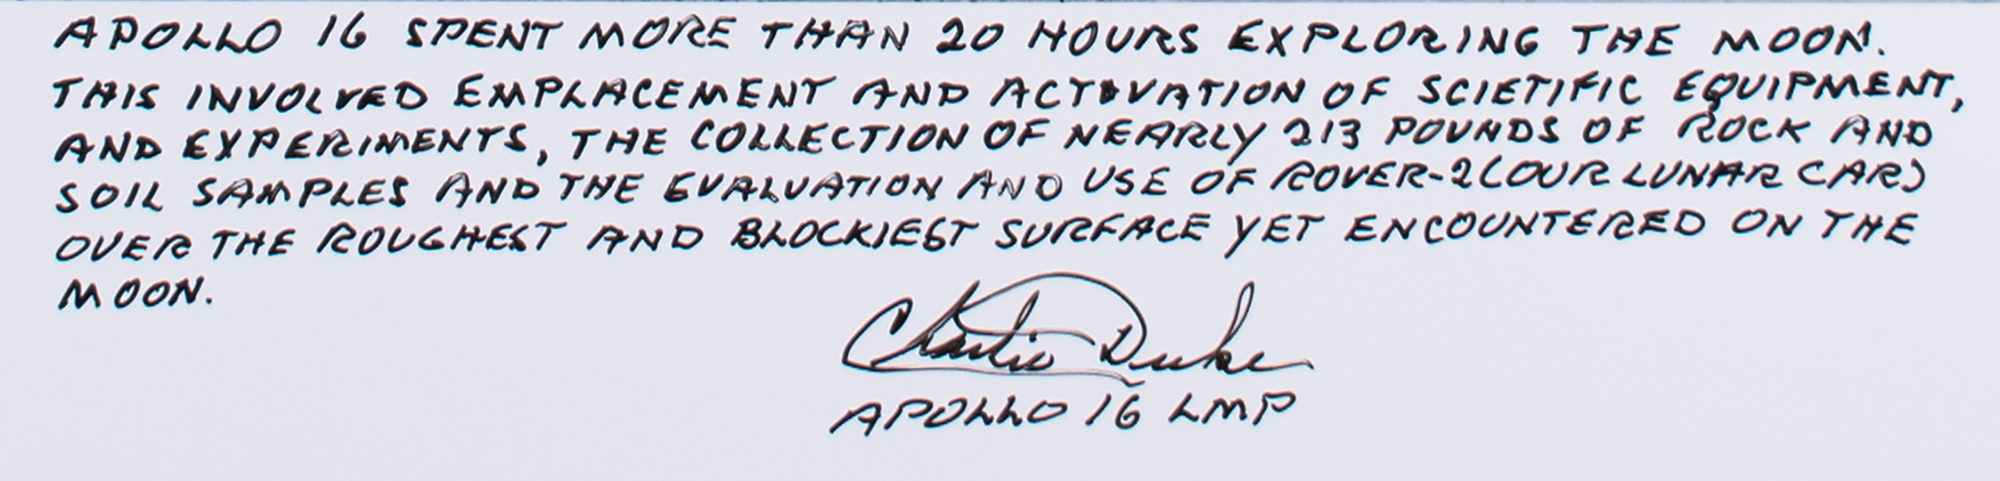 APOLLO 16 SPENT MORE THAN 20 HOURS EXPLORING THE MOON.
THIS INVOLVED EMPLACEMENT AND ACTIVATION OF SCIETIFIC EQUIPMENT,
AND EXPERIMENTS, THE COLLECTION OF NEARLY 213 POUNDS OF ROCK AND
SOIL SAMPLES AND THE EVALUATION AND USE OF ROVER-2(OUR LUNAR CAR)
OVER THE ROUGHEST AND BLOCKIEST SURFACE YET ENCOUNTERED ON THE
MOON.
Charlie Duke
APOLLO 16 LMP